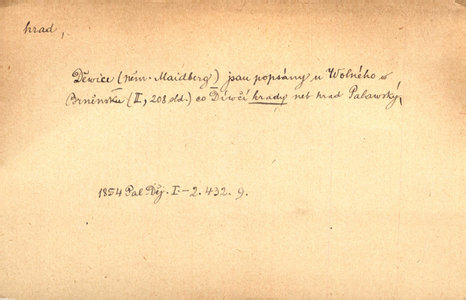 hrad,
Děwice (něm. Maidberg) jsau popsány u Wolného w
Brněnsku (II, 208 sld.) co Dívčí hrady neb hrad Pálawský,
1854 Pal Děj. I-2. 432. 9.